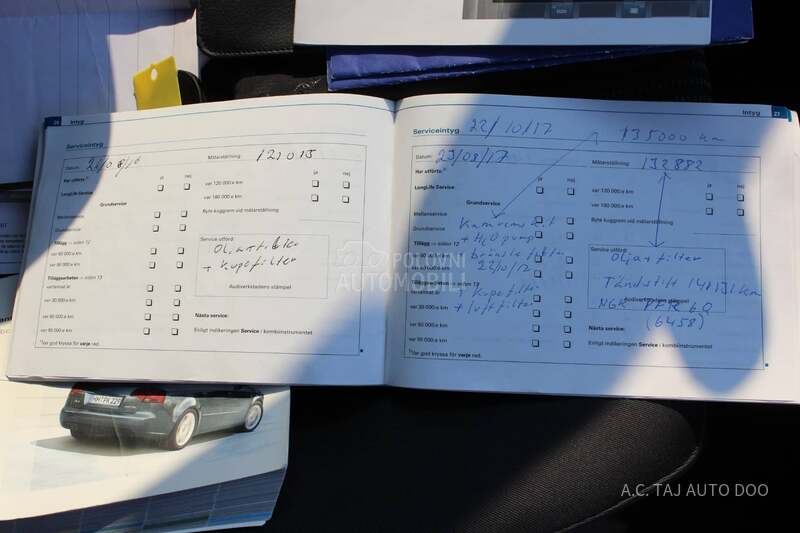 Intyg
Serviceintyg
Datum:
Mätarställning:
121015
Har utförts:
ja
nej
ja
nej
LongLife Service
var 120 000:e km
var 180 000:e km
Grundservice
Byte kuggrem vid mätarställning:
Mellanservice
Grundservice
Tillägg → sidan 12
Service utförd:
Olja + filter
+ Kupefilter
var 60 000:e km
var 90 000:e km
Tilläggsarbeten → sidan 13
vartannat år
Audiverkstadens stämpel
var 30 000:e km
var 60 000:e km
Nästa service:
var 90 000:e km
Enligt indikeringen Service i kombiinstrumentet
Var god kryssa för varje rad.
Intyg 27
Serviceintyg 22/10/17
135000 km
Datum: 23/08/17
Mätarställning: 132882
Har utförts:
ja
nej
ja
nej
LongLife Service
var 120 000:e km
var 180 000:e km
Grundservice
Byte kuggrem vid mätarställning:
Mellanservice
Grundservice
Kamremskit
+ H2O pump
Tillägg → sidan 12
Service utförd:
Olja + filter
22/10/17
Tilläggsarbeten → sidan 13
vartannat år
+ Kupefilter
+ luftfilter
Tändstift 141.131 km
Audiverkstadens stämpel
NGK PFR 6Q
(6458)
var 30 000:e km
var 60 000:e km
Nästa service:
var 90 000:e km
Enligt indikeringen Service i kombiinstrumentet
Var god kryssa för varje rad.
POLOVNI
AUTOMOBILI
A.C. TAJ AUTO DOO